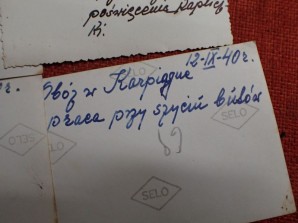 poświęcenia Kaplicz-
ki.
r.
12-IX-40 r.
Obóz w Karpiggue
praca przy szyciu butów
SELO
SELO